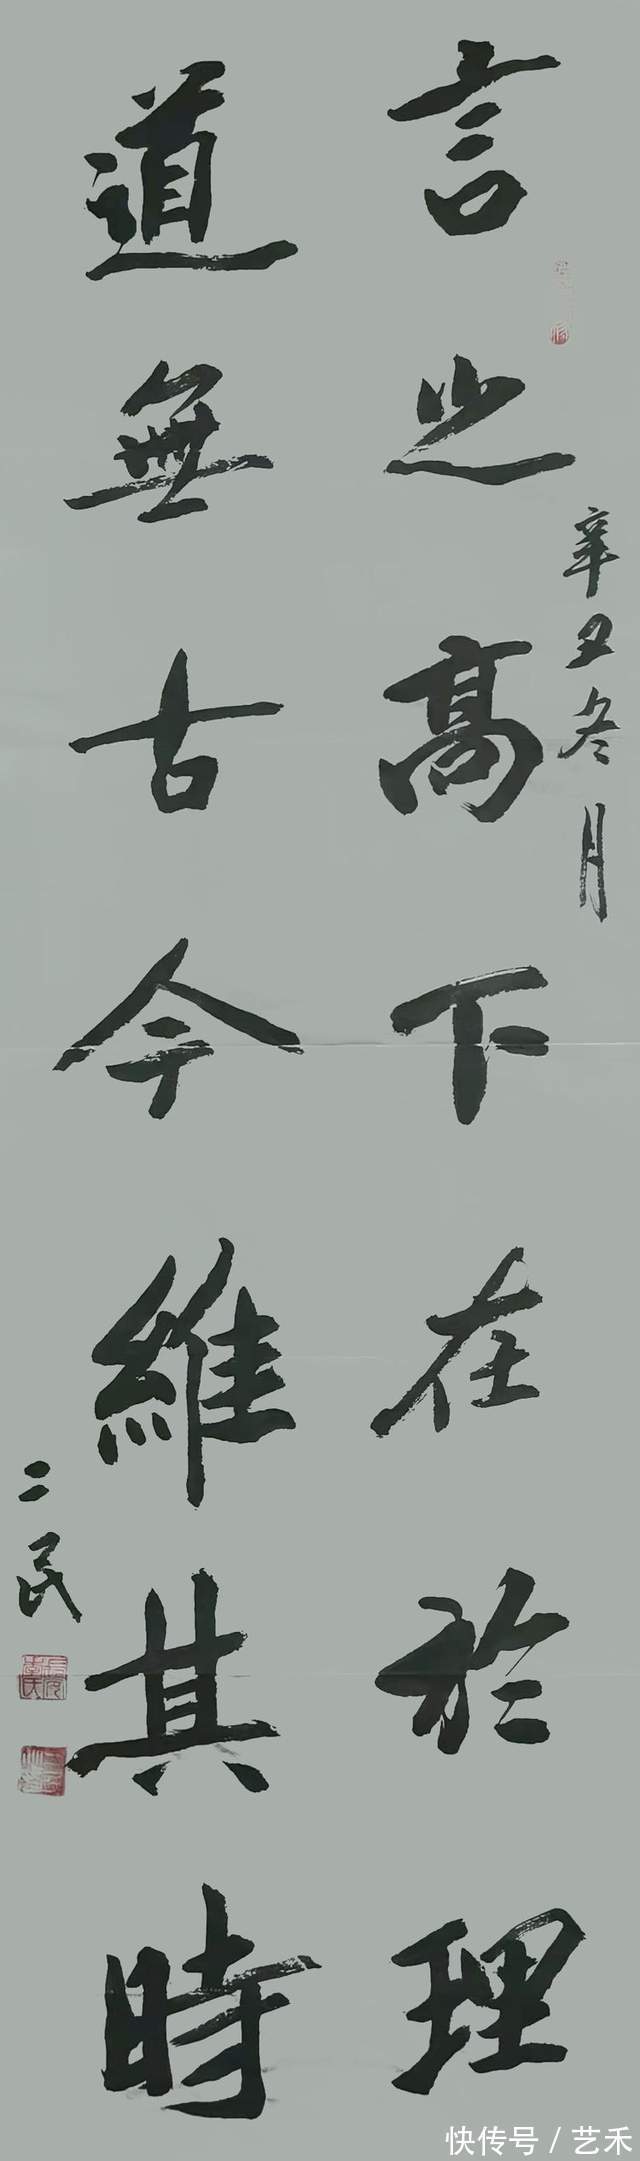 言之高下在於理
道無古今維其時
辛丑冬月
二民
快传号 / 艺禾